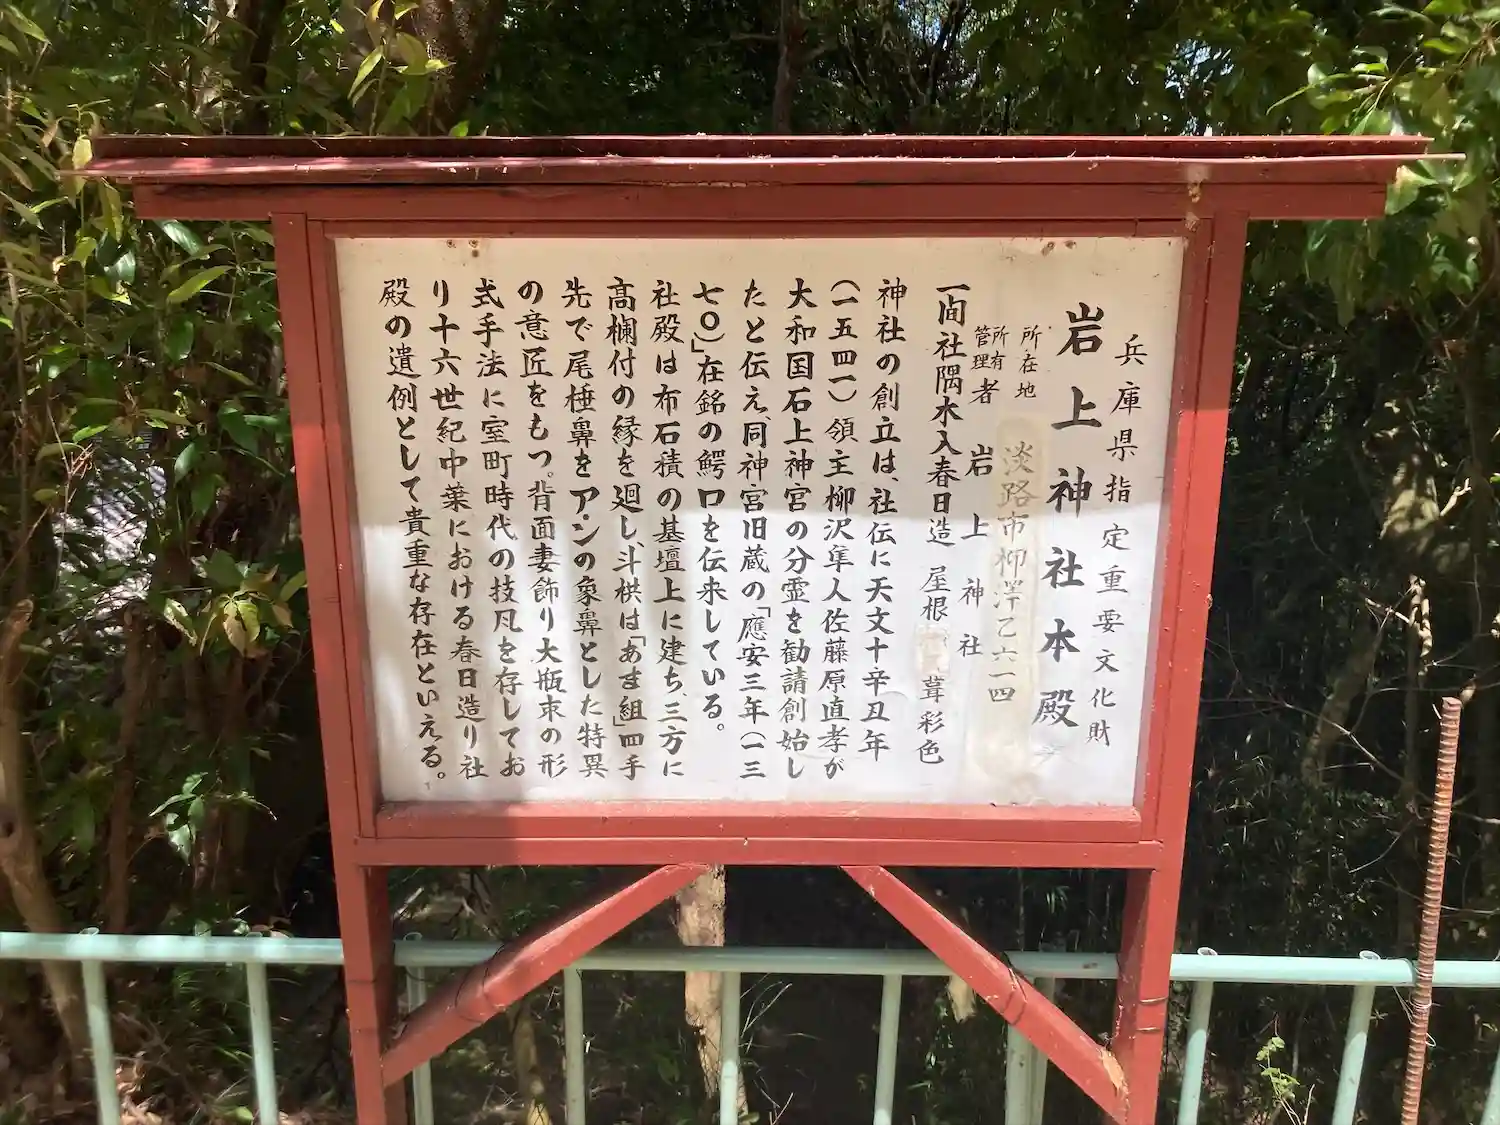 兵庫県指定重要文化財
岩上神社本殿
所在地 淡路市柳澤乙六一四
所有
管理者 岩上神社
一間社隅木入春日造 屋根 葺彩色
神社の創立は、社伝に天文十辛丑年
(一五四一)領主柳沢隼人佐藤原直孝が
大和国石上神宮の分霊を勧請創始し
たと伝え、同神宮旧蔵の「應安三年(一三
七〇)」在銘の鰐口を伝来している。
社殿は布石積の基壇上に建ち三方に
高欄付の縁を廻し、斗栱は「あま組」四手
先で尾棰鼻をアンの象鼻とした特異
の意匠をもつ。背面妻飾り大瓶束の形
式手法に室町時代の技凡を存してお
り十六世紀中葉における春日造り社
殿の遺例として貴重な存在といえる。